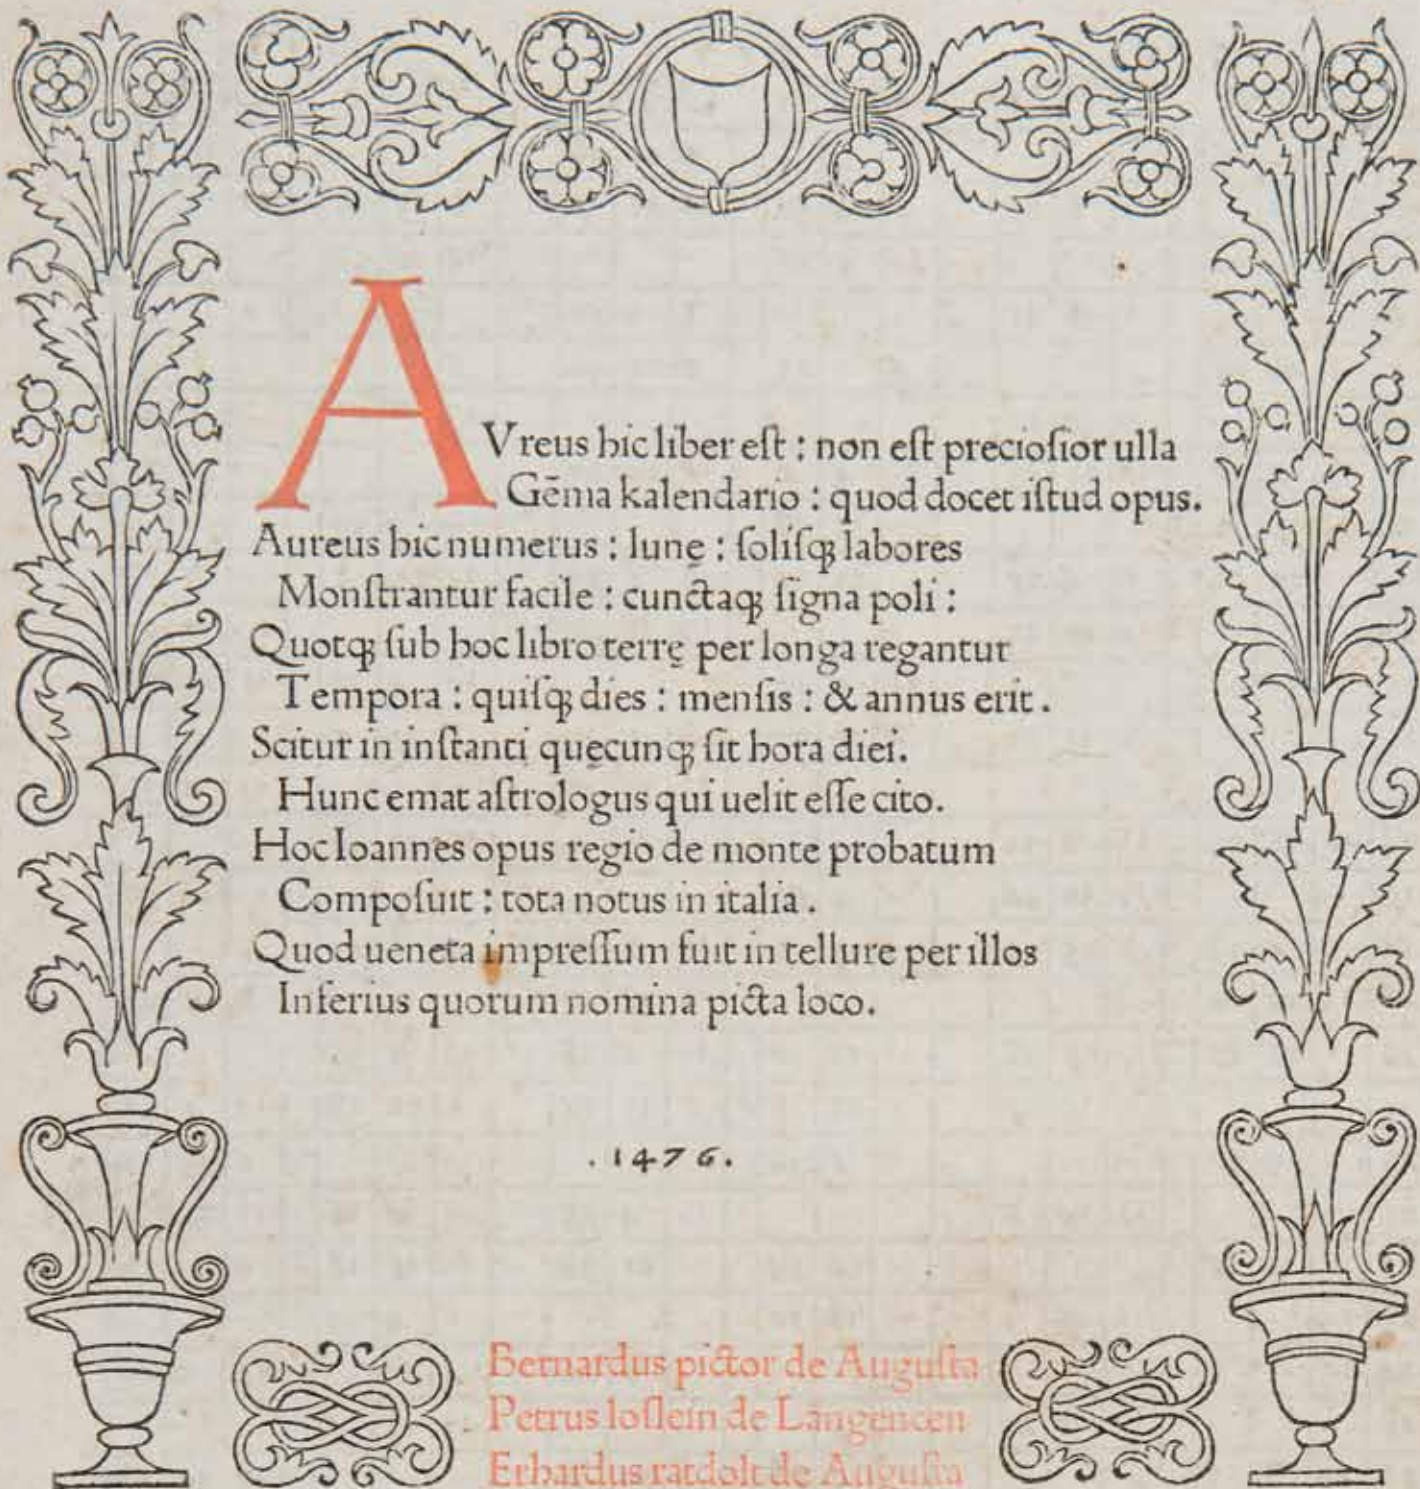 AVreus hic liber eſt : non eſt precioſior ulla
Gēma kalendario : quod docet iſtud opus.
Aureus hic numerus : lunę : ſoliſqꝫ labores
Monſtrantur facile : cunctaqꝫ ſigna poli :
Quotqꝫ ſub hoc libro terrę per longa regantur
Tempora : quiſqꝫ dies : menſis : & annus erit .
Scitur in inſtanti quęcunqꝫ ſit hora diei.
Hunc emat aſtrologus qui uelit eſſe cito.
Hoc Ioannes opus regio de monte probatum
Compoſuit : tota notus in italia .
Quod ueneta impreſſum fuit in tellure per illos
Inferius quorum nomina picta loco.
. 1476.
Bernardus pictor de Auguſta
Petrus loſlein de Langencen
Erhardus ratdolt de Auguſta